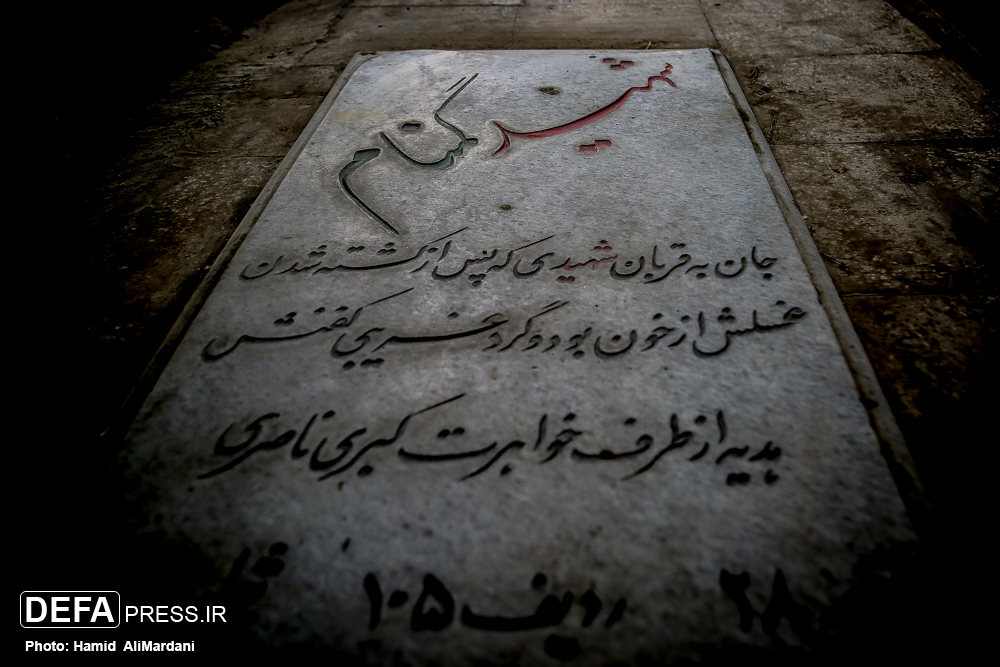 شهید گمنام
جان به قربان شهیدی که پس از کشته شدن
غسلش از خون بود و گرد غریبی کفنش
هدیه از طرف خواهرت کبری ناصری
۶۸ ردیف ۱۰۵
DEFAPRESS.IR
Photo: Hamid AliMardani